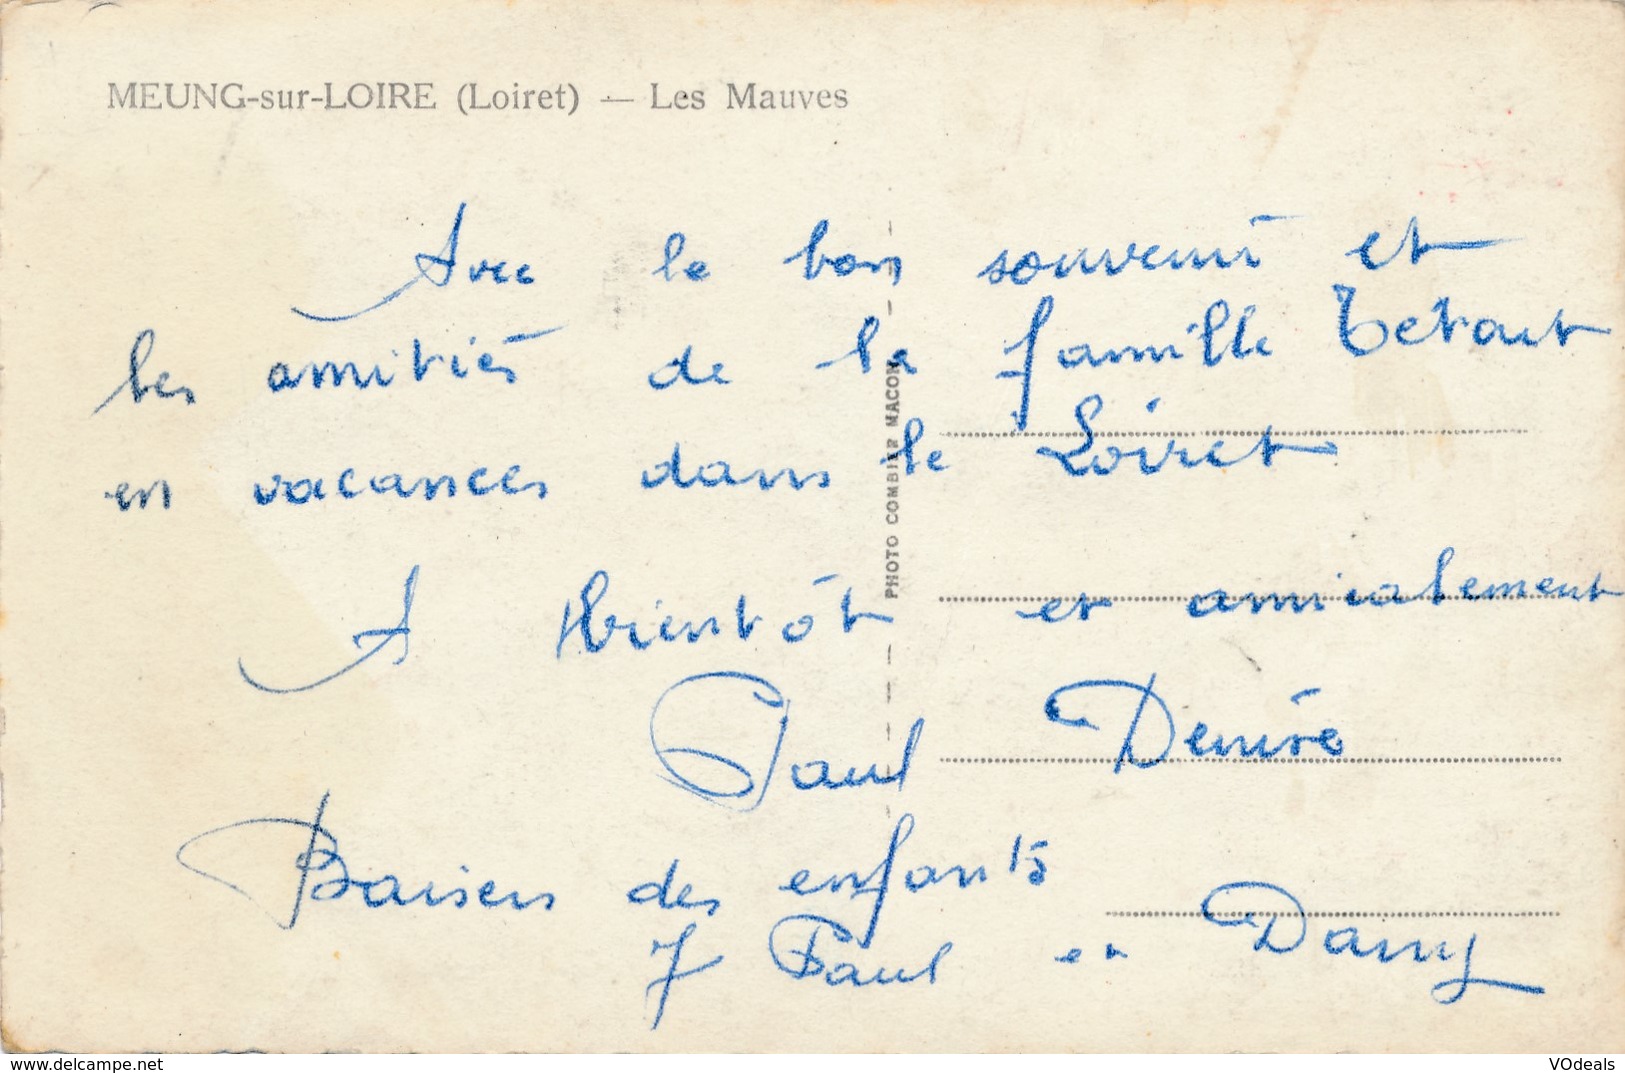 MEUNG-sur-LOIRE (Loiret) — Les Mauves
Avec le bon souvenir et
les amitiés de la famille Tetart
en vacances dans le Loiret
A bientôt et amicalement
Paul Denise
Baisers des enfants
J Paul et Dany
PHOTO COMBIER MACON
www.delcampe.net
VOdeals